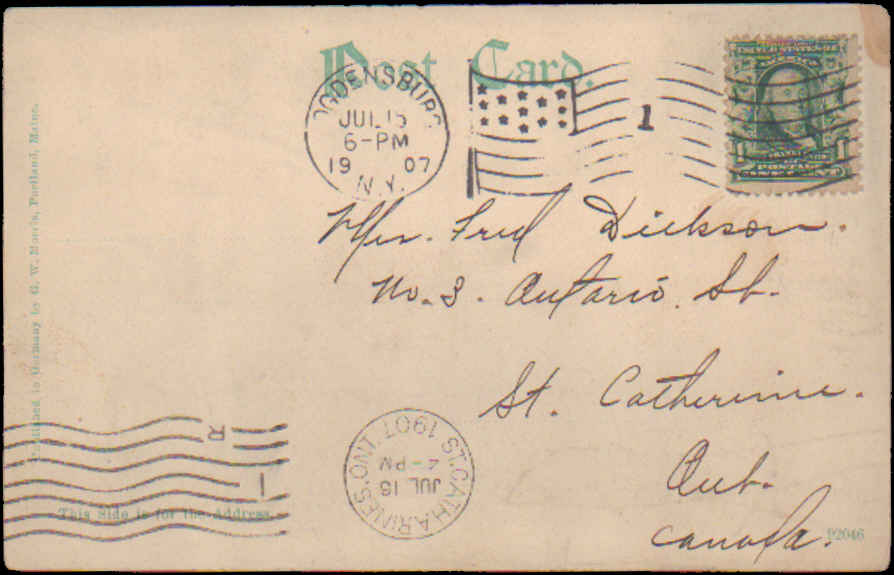 Post Card.
OGDENSBURG
JUL 15
6-PM
1907
N.Y.
1
UNITED STATES OF
AMERICA
FRANKLIN
1 POSTAGE 1
ONE CENT
Mr. Fred Dickson.
No. 3. Ontario St.
St. Catherine.
Ont.
Canada.
Published in Germany by G. W. Morris, Portland, Maine.
R
I
ST. CATHARINES. ONT.
4-PM
JUL 16
1907
This Side is for the Address.
92046